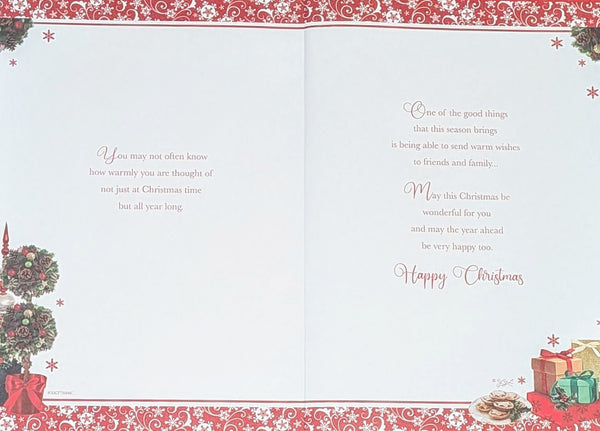 You may not often know
how warmly you are thought of
not just at Christmas time
but all year long.
One of the good things
that this season brings
is being able to send warm wishes
to friends and family...
May this Christmas be
wonderful for you
and may the year ahead
be very happy too.
Happy Christmas